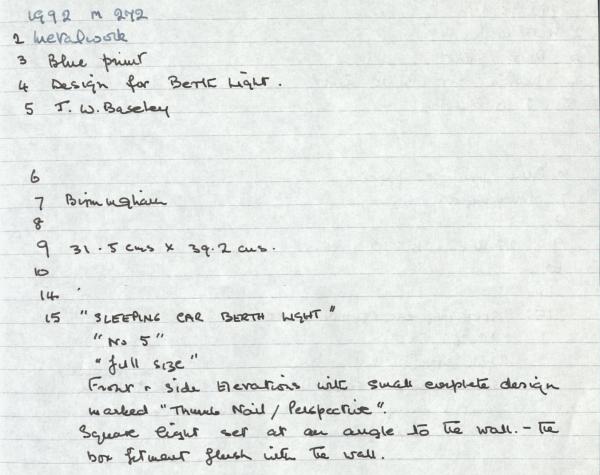 1992 M 272
2 Metalwork
3 Blue print
4 Design for Berth Light.
5 J. W. Baseley
6
7 Birmingham
8
9 31.5 cms x 39.2 cms.
10
14
15 "SLEEPING CAR BERTH LIGHT"
"No 5"
"full size"
Front & side Elevations with small complete design
marked "Thumb Nail / Perspective".
Square light set at an angle to the wall. - the
box fitment flush with the wall.